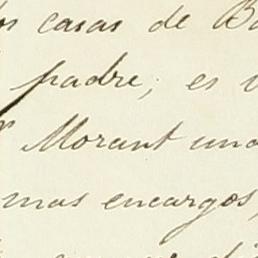 casas de
padre; es
Morant una
mas encargos,